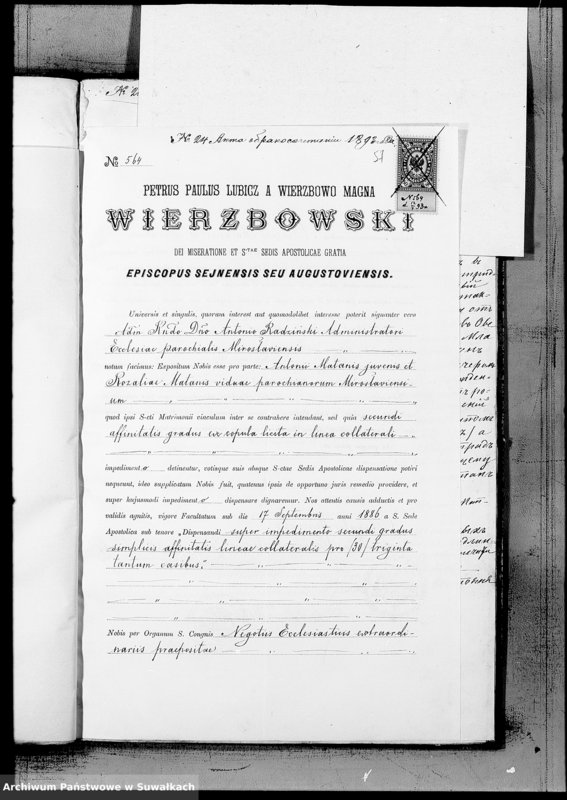 № 24 Анта обракосочетании 1893
№ 564
51
№ 564
PETRUS PAULUS LUBICZ A WIERZBOWO MAGNA
WIERZBOWSKI
DEI MISERATIONE ET STAE SEDIS APOSTOLICAE GRATIA
EPISCOPUS SEJNENSIS SEU AUGUSTOVIENSIS.
Universis et singulis, quorum interest aut quomodolibet interesse poterit signanter vero
Adm Rndo Dno Antonio Radziński Administratori
Ecclesiae parochialis Mirosłaviensis
notum facimus: Expositum Nobis esse pro parte: Antonii Matanis juvenis et
Rozaliae Matanis viduae parochianorum Mirosłaviensi-
um
quod ipsi S-cti Matrimonii vinculum inter se contrahere intendant, sed quia secundi
affinitatis gradus ex copula licita in linea collaterali
impedimento detinentur, votisque suis absque S-ctae Sedis Apostolicae dispensatione potiri
nequeunt, ideo supplicatum Nobis fuit, quatenus ipsis de opportuno juris remedio providere, et
super hujusmodi impedimento dispensare dignaremur. Nos attentis causis adductis et pro
validis agnitis, vigore Facultatum sub die 17 Septembris anni 1886 a S. Sede
Apostolica sub tenore „Dispensandi super impedimento secundi gradus
simplicis affinitatis lineae collateralis pro /30/ triginta
tantum casibus."
Nobis per Organum S. Congnis Negotiis Ecclesiasticis extraordi-
nariis praepositae
Archiwum Państwowe w Suwałkach